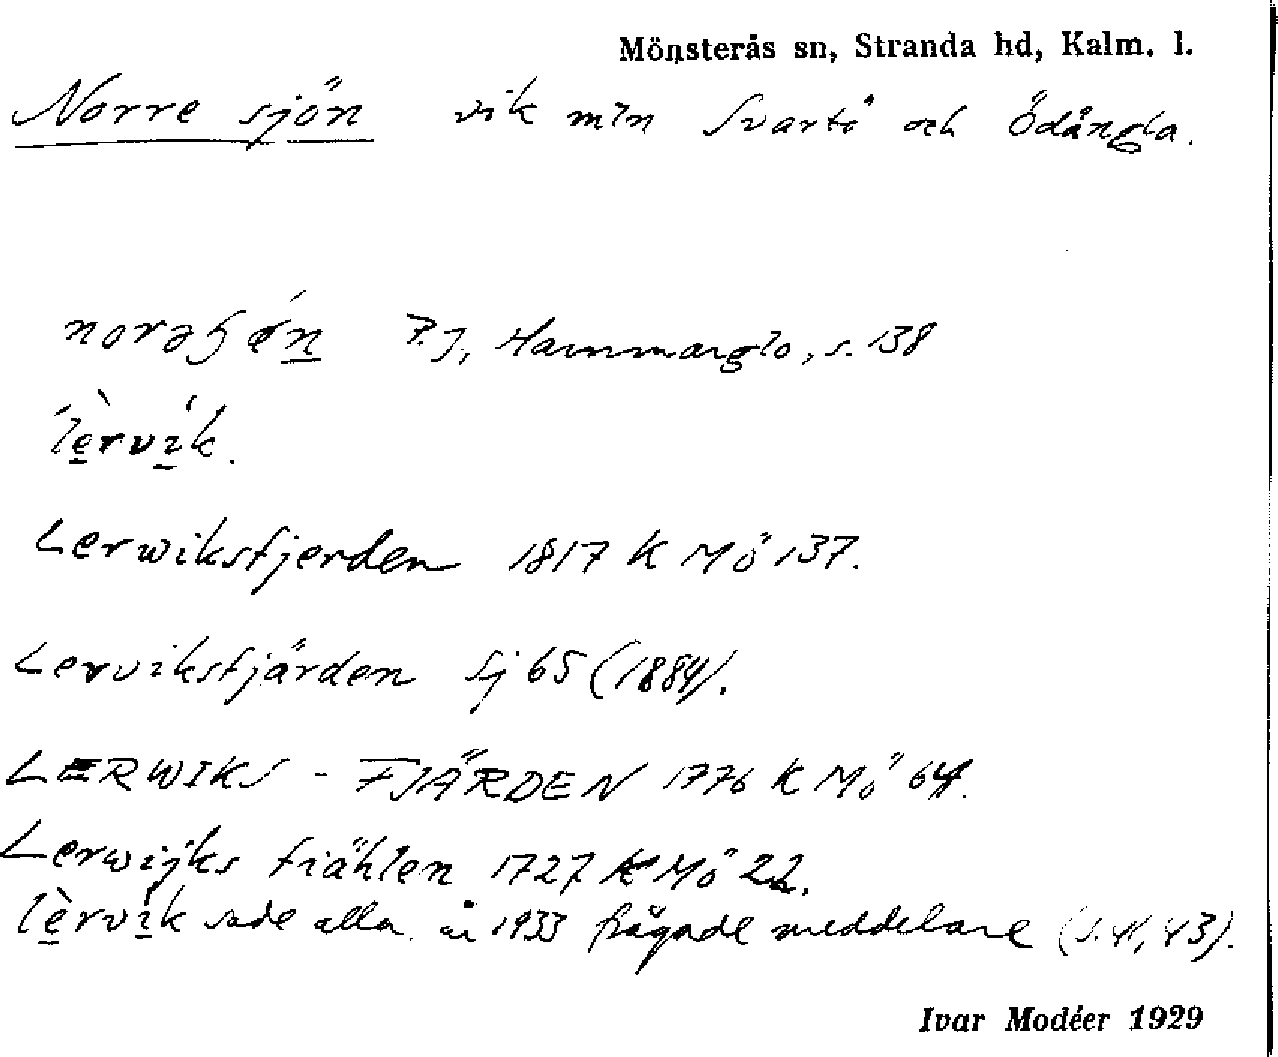 Mönsterås sn, Stranda hd, Kalm. l.
Norre sjön vik mln Svartö och Ödängla.
P.J, Hammarglo, s. 138
lèrvik.
Lerwiksfjerden 1817 K Mö 137.
Lerviksfjärden Sj 65 (1884).
LERWIKS - FJÄRDEN 1776 K Mö 64.
Lerwijks fiählen 1727 K Mö 22.
lèrvik sade alla år 1933 frågade meddelare (s. 41, 43).
Ivar Modéer 1929